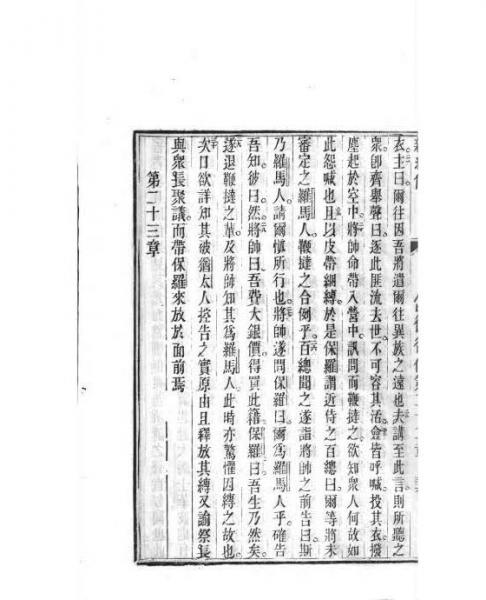 衣主曰爾往因吾將遣爾往異族之遠也夫講至此言則所聽之
衆卽齊舉聲曰逐此匪流去世不可容其活僉皆呼喊投其衣擾
塵起於空中將帥命帶入營中訊問而鞭撻之欲知衆人何故如
此怨喊也且以皮帶綑縛於是保羅謂近侍之百總曰爾等將未
審定之羅馬人鞭撻之合例乎百總聞之遂詣將帥之前告曰斯
乃羅馬人請爾愼所行也將帥遂問保羅曰爾爲羅馬人乎確告
吾知彼曰然將帥曰吾費大銀價得買此籍保羅曰吾生乃然矣
遂退鞭撻之輩及將帥知其爲羅馬人此時亦驚懼因縛之故也
次日欲詳知其被猶太人控告之實原由且釋放其縛又諭祭長
與衆長聚議而帶保羅來放於面前焉
第二十三章